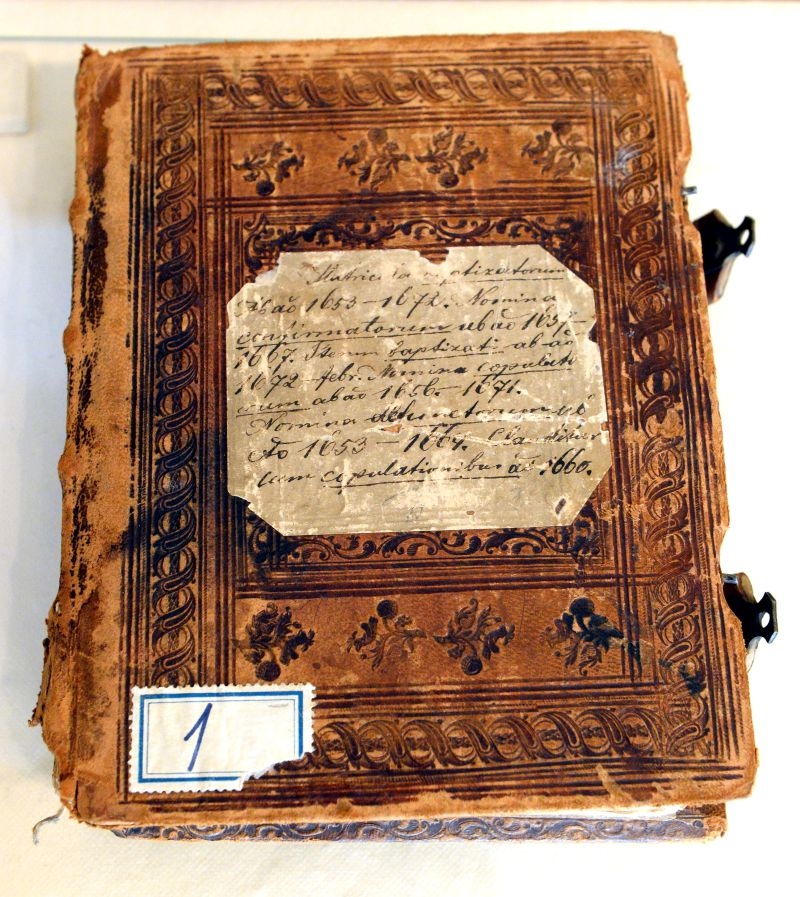 Matricula baptizatorum
Ab aō 1653 – 1672. Nomina
confirmatorum ab aō 165
1667. Iterum baptizati ab ao
1672 febr. Nomina copulato
rum ab aō 1656. – 1671.
Nomina defunctorum ab
Ao 1653 – 1664.
cum copulationibus aō 1660.
1